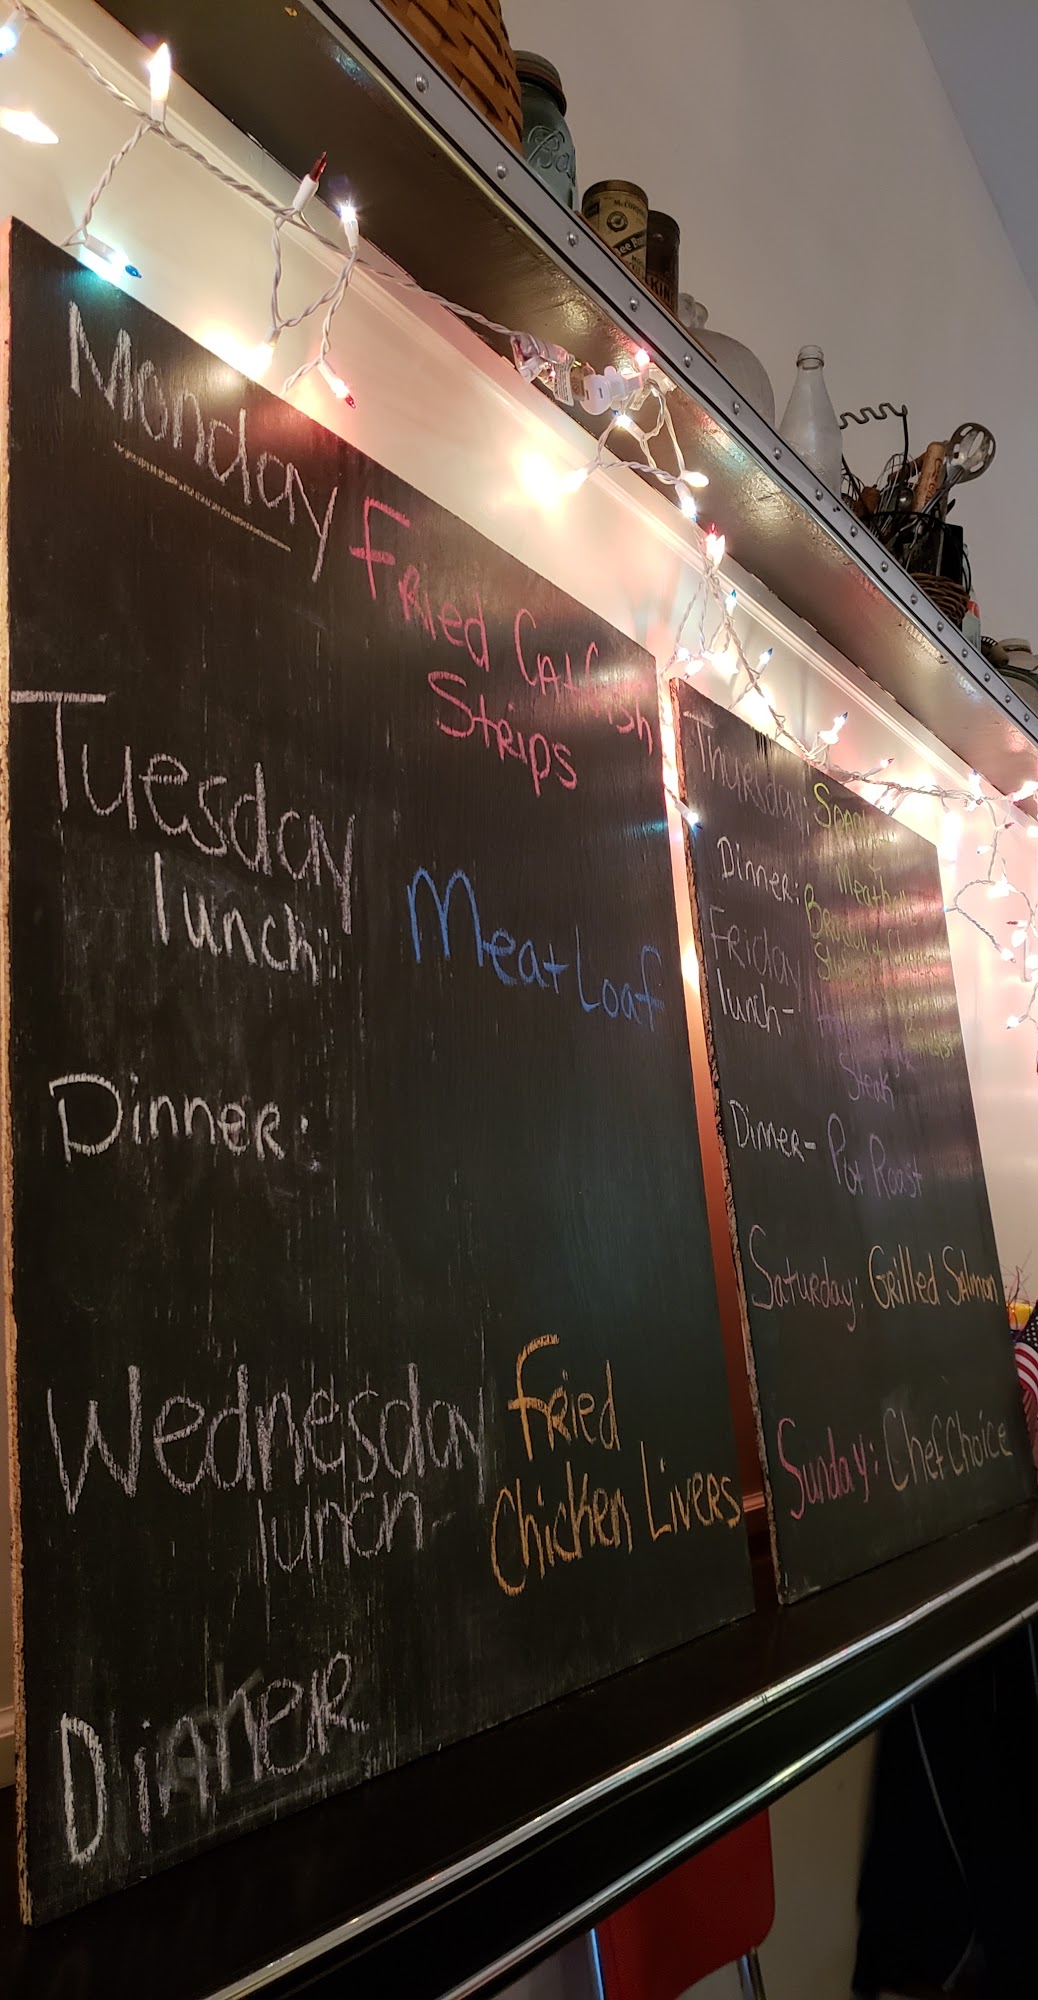 Monday
Fried Catfish
Strips
Tuesday
lunch:
Meat Loaf
Dinner:
Wednesday
lunch-
Fried
Chicken Livers
Dinner
Thursday:
Dinner:
Friday
lunch-
Steak
Dinner- Pot Roast
Saturday: Grilled Salmon
Sunday: Chef Choice